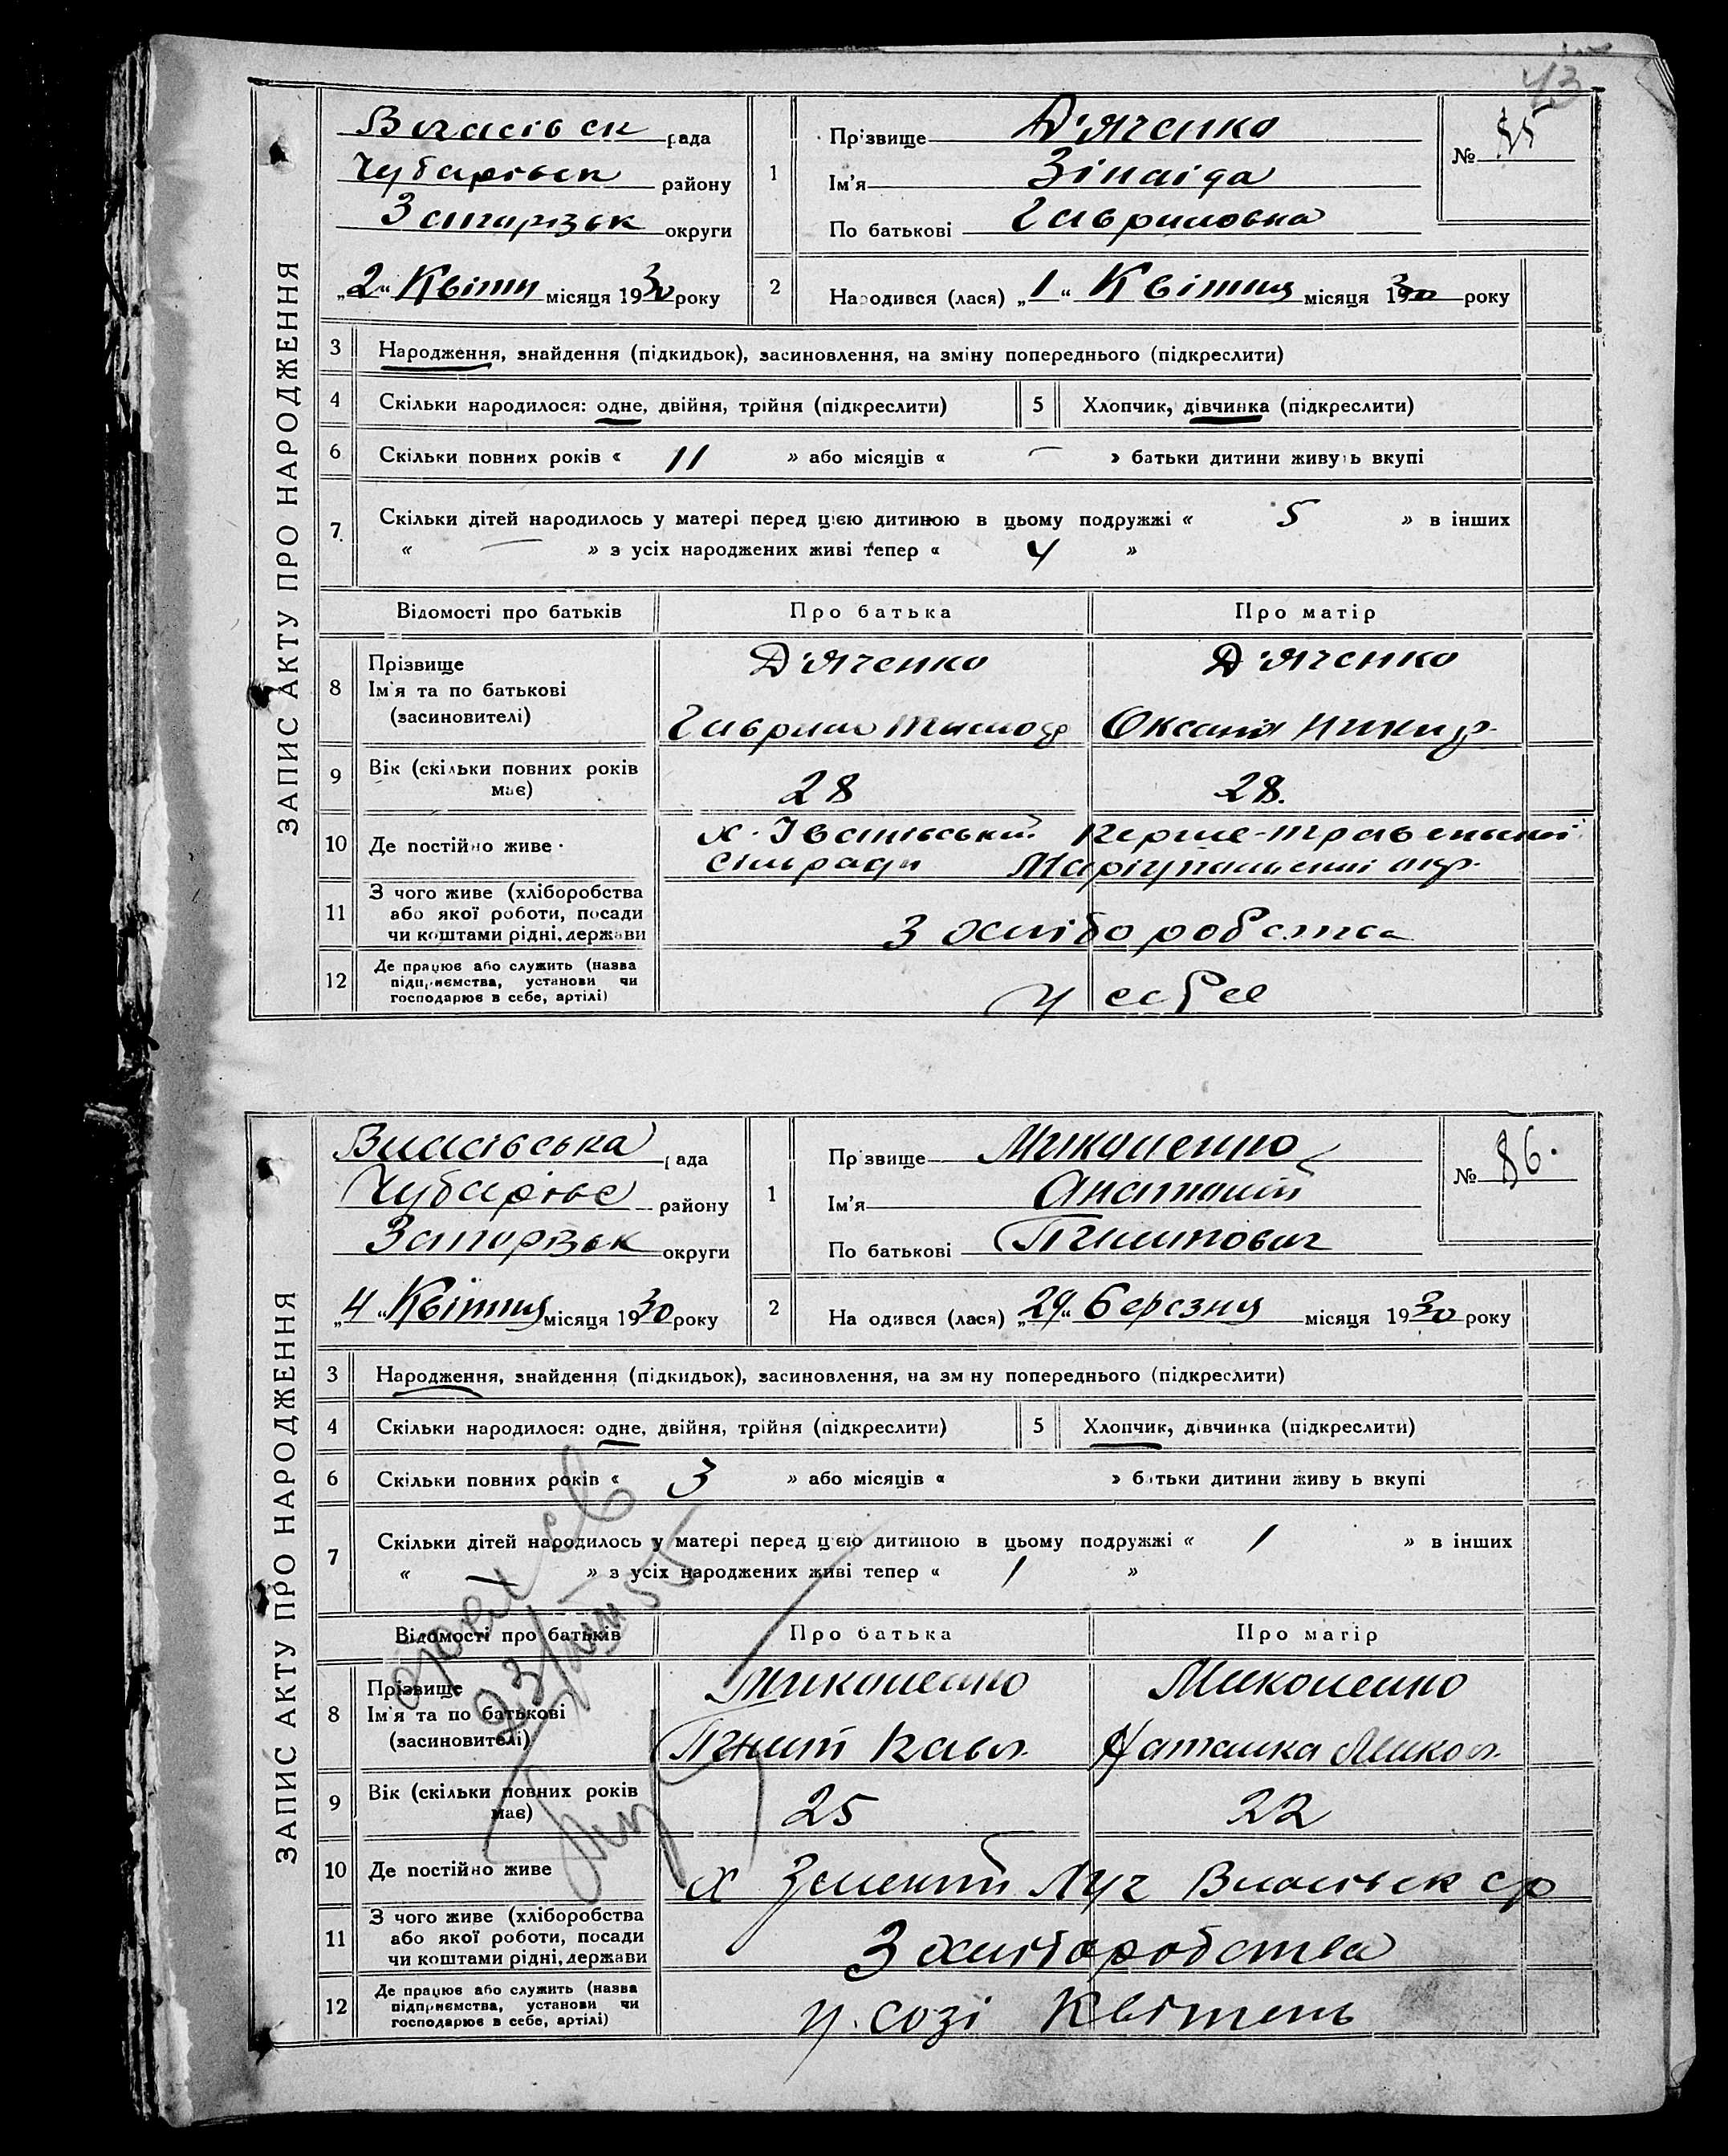 43
ЗАПИС АКТУ ПРО НАРОДЖЕННЯ
Власівськ рада
Чубарівськ району
Запорізьк округи
„2“ Квітн місяця 1930 року
1
Прізвище Д'яченко
Ім'я Зінаіда
По батькові Гавриловна
№ 85
2
Народився (лася) „1“ Квітня місяця 1930 року
3 Народження, знайдення (підкидьок), засиновлення, на зміну попереднього (підкреслити)
4 Скільки народилося: одне, двійня, трійня (підкреслити)
5 Хлопчик, дівчинка (підкреслити)
6 Скільки повних років « 11 » або місяців « — » батьки дитини живуть вкупі
7. Скільки дітей народилось у матері перед цією дитиною в цьому подружжі « 5 » в інших
« — » з усіх народжених живі тепер « 4 »
Відомості про батьків Про батька Про матір
8 Прізвище Д'яченко Д'яченко
Ім'я та по батькові
(засиновителі) Гаврило Тимоф Оксана Никиф.
9 Вік (скільки повних років має) 28 28.
10 Де постійно живе х. Іванівський Перше-Травеньської
сільради Маріупольської окр.
11 З чого живе (хліборобства
або якої роботи, посади
чи коштами рідні, держави З хліборобства
12 Де працює або служить (назва
підприємства, установи чи
господарює в себе, артілі) У себе
ЗАПИС АКТУ ПРО НАРОДЖЕННЯ
Власівська рада
Чубарівс району
Запорізьк округи
„4“ Квітня місяця 1930 року
1
Прізвище Миколенко
Ім'я Анатолій
По батькові Пилипович
№ 86.
2
Народився (лася) „29“ березня місяця 1930 року
3 Народження, знайдення (підкидьок), засиновлення, на зміну попереднього (підкреслити)
4 Скільки народилося: одне, двійня, трійня (підкреслити)
5 Хлопчик, дівчинка (підкреслити)
6 Скільки повних років « 3 » або місяців « » батьки дитини живуть вкупі
7 Скільки дітей народилось у матері перед цією дитиною в цьому подружжі « 1 » в інших
« — » з усіх народжених живі тепер « 1 »
23/VIII 55
Відомості про батьків Про батька Про матір
8 Прізвище Миколенко Миколенко
Ім'я та по батькові
(засиновителі) Пилип Павл. Наталка Микол.
9 Вік (скільки повних років має) 25 22
10 Де постійно живе х Зелений Луч Власівськ ср
11 З чого живе (хліборобства
або якої роботи, посади
чи коштами рідні, держави З хліборобства
12 Де працює або служить (назва
підприємства, установи чи
господарює в себе, артілі) у. созі Квітень